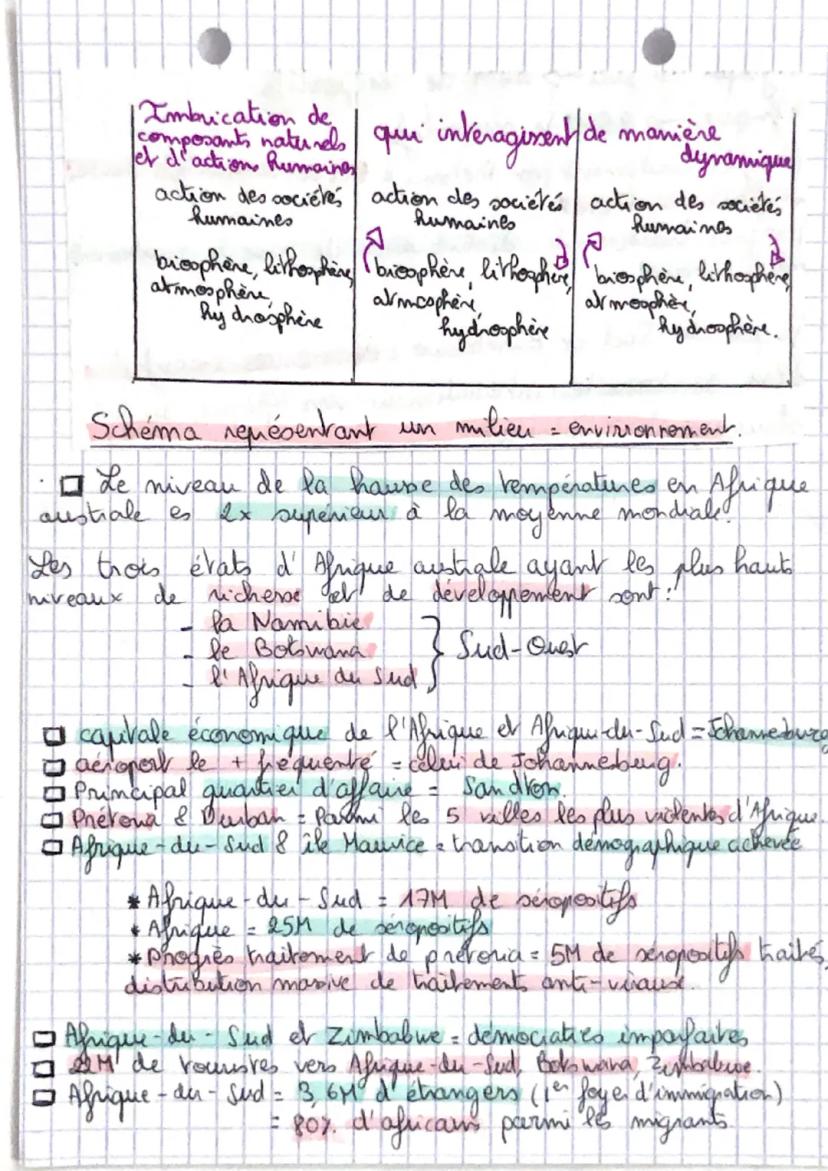 Imbrication de
composants naturels
et d'actions humaines
action des sociétés
humaines
biosphère, lithosphère,
atmosphère,
hydrosphère
qui intéragissent de manière
dynamique
action des sociétés
humaines
biosphère, lithosphère,
atmosphère,
hydrosphère
action des sociétés
humaines
biosphère, lithosphère,
atmosphère,
hydrosphère.
Schéma représentant un milieu = environnement.
Le niveau de la hausse des températures en Afrique
australe es 2x supérieur à la moyenne mondiale.
Les trois états d'Afrique australe ayant les plus hauts
niveaux de richesse et de développement sont :
- la Namibie
- le Botswana } Sud-Ouest
- l'Afrique du Sud
capitale économique de l'Afrique et Afrique-du-Sud = Johannesburg
aéroport le + fréquenté = celui de Johannesburg.
Principal quartier d'affaire = Sandton.
Prétoria & Durban = Parmi les 5 villes les plus violentes d'Afrique.
Afrique-du-Sud & île Maurice = transition démographique achevée
* Afrique-du-Sud = 17M de séropositifs
* Afrique = 25M de séropositifs
* Progrès traitement de prétoria = 5M de séropositifs traités,
distribution massive de traitements anti-viraux.
Afrique-du-Sud et Zimbabwe = démocraties imparfaites
22M de touristes vers Afrique-du-Sud, Botswana, Zimbabwe.
Afrique-du-Sud = 3,6M d'étrangers (1er foyer d'immigration)
= 80% d'africains parmi les migrants.